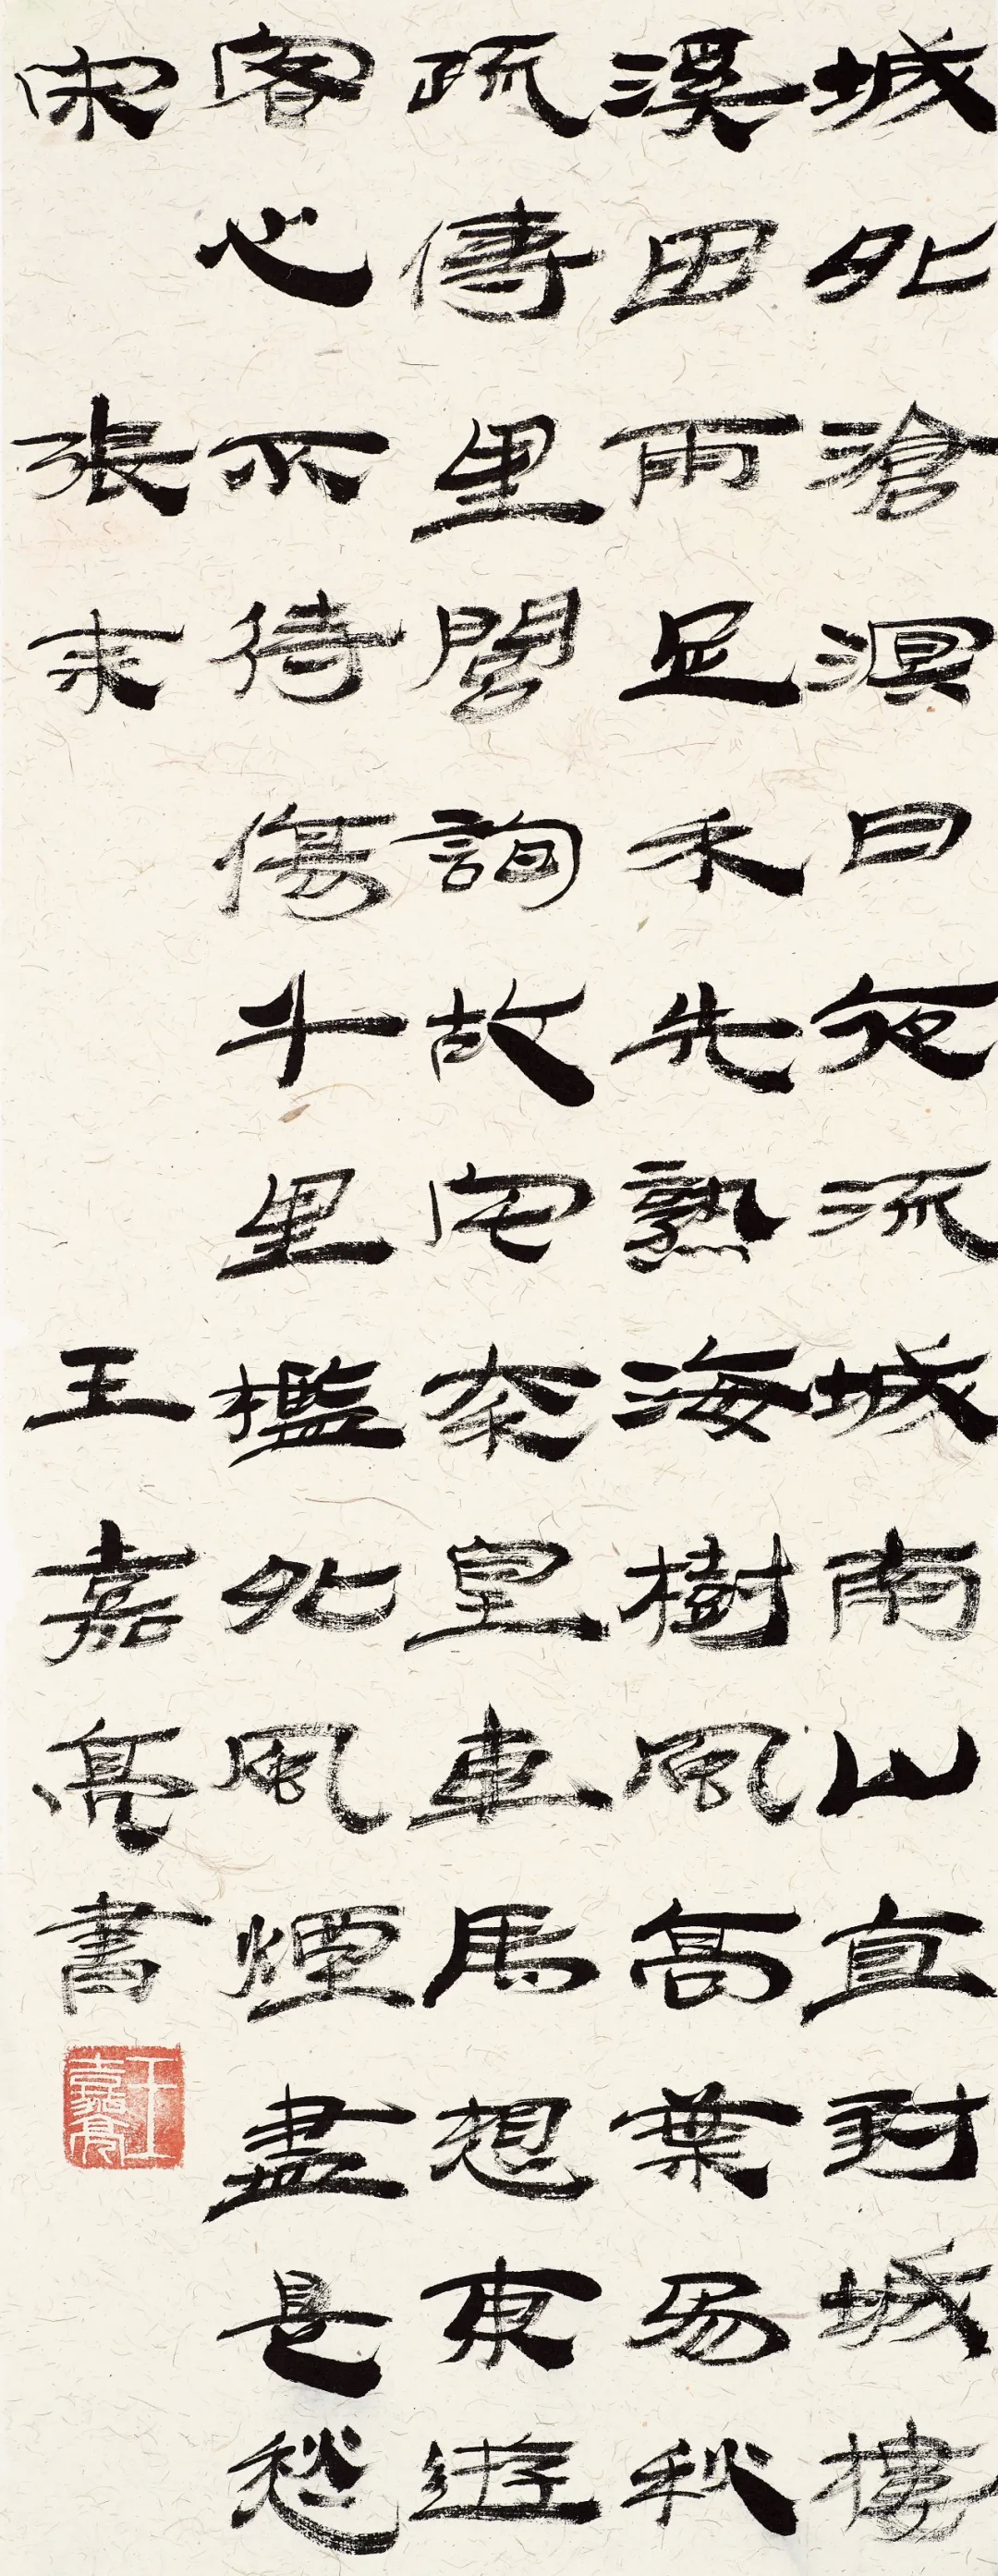 城外滄溟日夜流城南山直對城樓
溪田雨足禾先熟海樹風高葉易秋
疏傳里閭詢故宅秦皇車馬想東遊
客心不待傷千里檻外風煙盡是愁
宋 張耒 王嘉亮書
王嘉亮